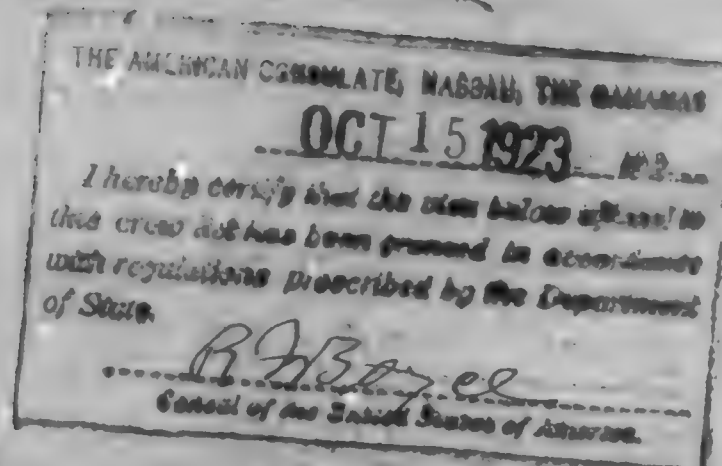 THE AMERICAN CONSULATE, NASSAU, THE BAHAMAS
OCT 15 1923
I hereby certify that the visa below affixed to
this crew list has been granted in accordance
with regulations prescribed by the Department
of State.
R F Boyce
Consul of the United States of America.